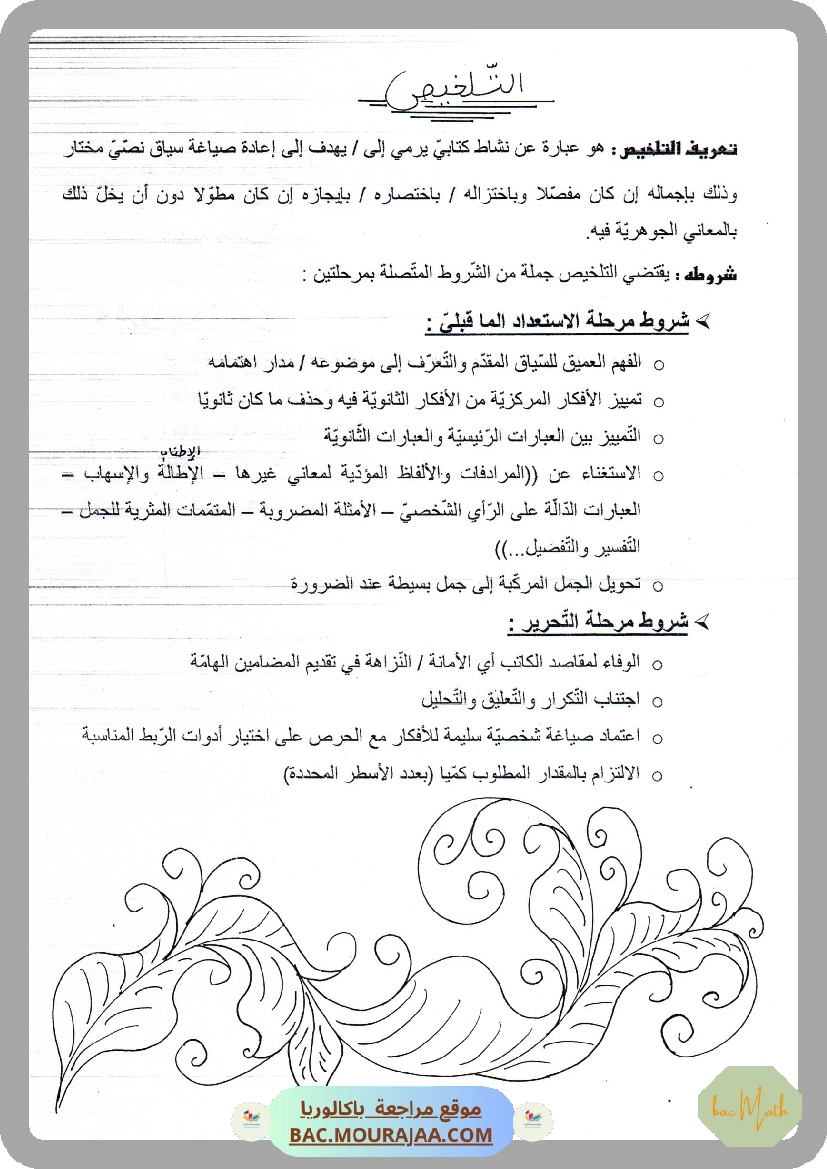 التّلخيص
تعريف التلخيص : هو عبارة عن نشاط كتابيّ يرمي إلى / يهدف إلى إعادة صياغة سياق نصّيّ مختار
وذلك بإجماله إن كان مفصّلا وباختزاله / باختصاره / بإيجازه إن كان مطوّلا دون أن يخلّ ذلك
بالمعاني الجوهريّة فيه.
شروطه : يقتضي التلخيص جملة من الشّروط المتّصلة بمرحلتين :
شروط مرحلة الاستعداد الما قبليّ :
○ الفهم العميق للسّياق المقدّم والتّعرّف إلى موضوعه / مدار اهتمامه
○ تمييز الأفكار المركزيّة من الأفكار الثانويّة فيه وحذف ما كان ثانويّا
○ التّمييز بين العبارات الرّئيسيّة والعبارات الثّانويّة
الإطناب
○ الاستغناء عن ((المرادفات والألفاظ المؤدّية لمعاني غيرها – الإطالة والإسهاب –
العبارات الدّالّة على الرّأي الشّخصيّ – الأمثلة المضروبة – المتمّمات المثرية للجمل –
التّفسير والتّفصيل...))
○ تحويل الجمل المركّبة إلى جمل بسيطة عند الضرورة
شروط مرحلة التّحرير :
○ الوفاء لمقاصد الكاتب أي الأمانة / النّزاهة في تقديم المضامين الهامّة
○ اجتناب التّكرار والتّعليق والتّحليل
○ اعتماد صياغة شخصيّة سليمة للأفكار مع الحرص على اختيار أدوات الرّبط المناسبة
○ الالتزام بالمقدار المطلوب كمّيا (بعدد الأسطر المحددة)
موقع مراجعة باكالوريا
BAC.MOURAJAA.COM
bac Math